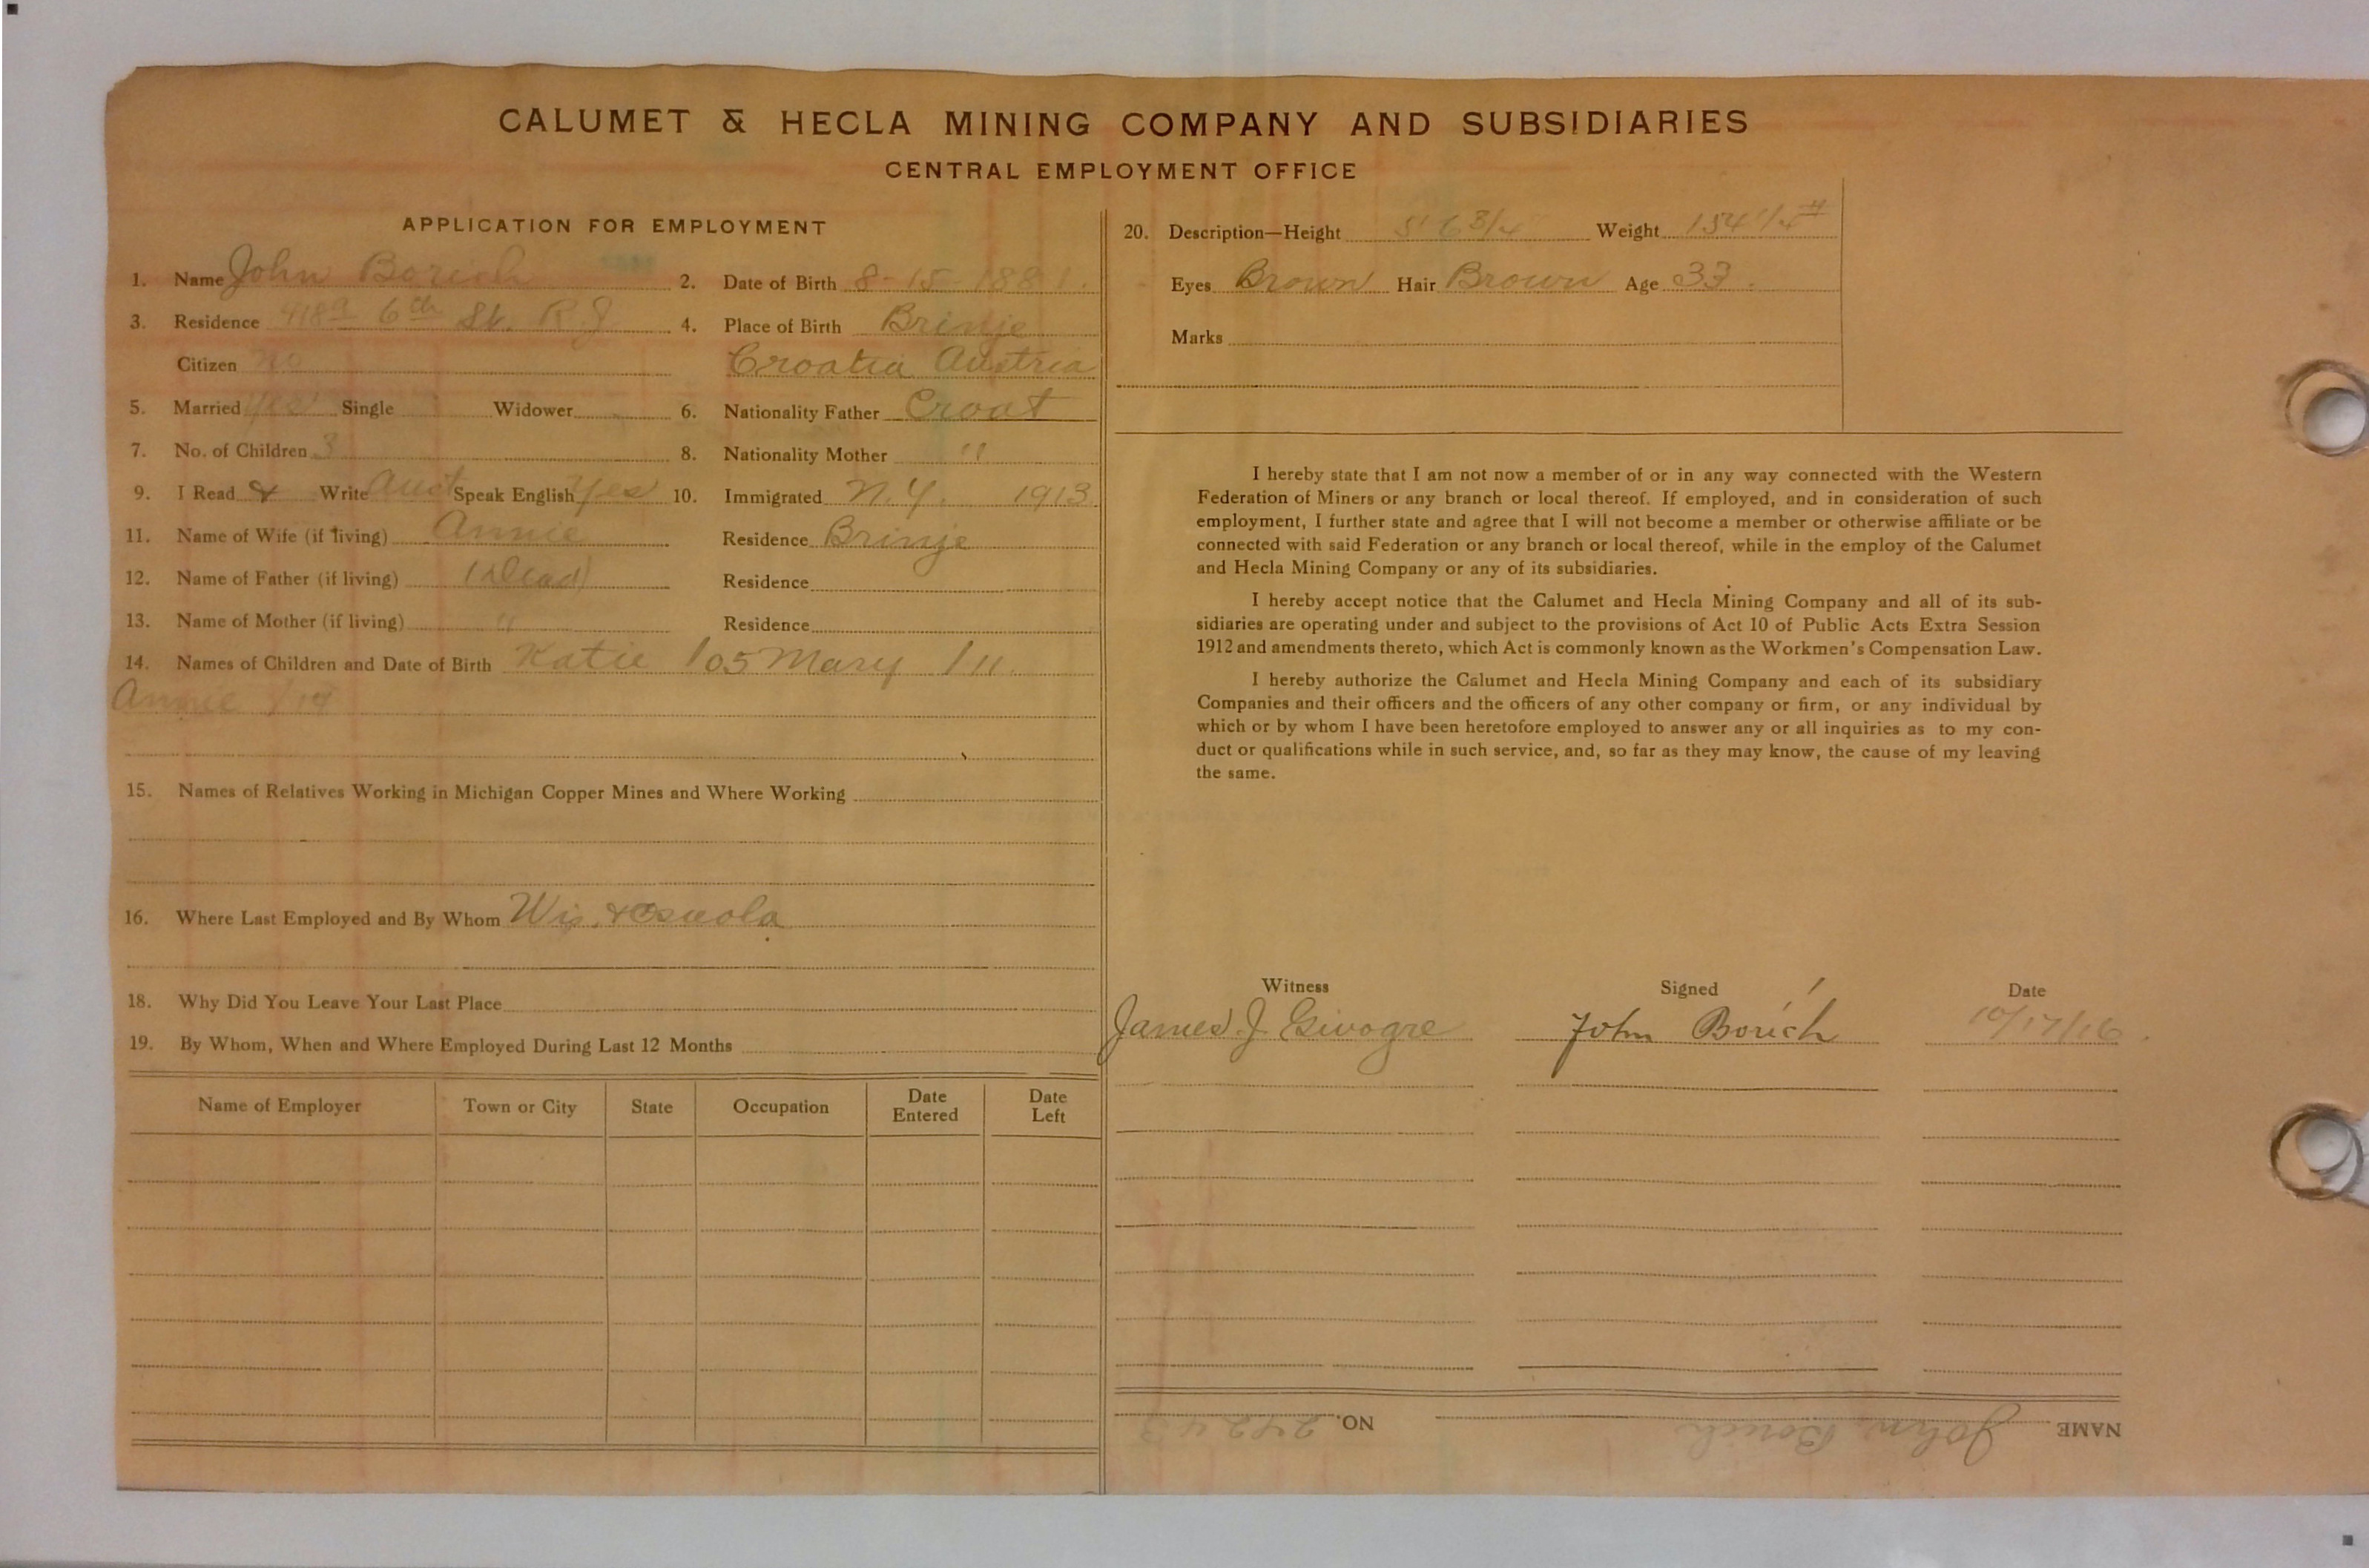 CALUMET & HECLA MINING COMPANY AND SUBSIDIARIES
CENTRAL EMPLOYMENT OFFICE
APPLICATION FOR EMPLOYMENT
1. Name John Borich 2. Date of Birth 8-15-1881.
3. Residence 4189 6th St. R.J 4. Place of Birth Brinje
Citizen no Croatia Austria
5. Married yes Single Widower 6. Nationality Father Croat
7. No. of Children 3 8. Nationality Mother "
9. I Read & Write Aust Speak English yes 10. Immigrated N.Y. 1913.
11. Name of Wife (if living) Annie Residence Brinje
12. Name of Father (if living) (Dead) Residence
13. Name of Mother (if living) " Residence
14. Names of Children and Date of Birth Katie /05 Mary /11.
Annie /14
15. Names of Relatives Working in Michigan Copper Mines and Where Working
16. Where Last Employed and By Whom Wis. & Osceola
18. Why Did You Leave Your Last Place
19. By Whom, When and Where Employed During Last 12 Months
Name of Employer Town or City State Occupation Date Entered Date Left
20. Description—Height 5' 6 3/4 Weight 154 1/4 #
Eyes Brown Hair Brown Age 33.
Marks
I hereby state that I am not now a member of or in any way connected with the Western
Federation of Miners or any branch or local thereof. If employed, and in consideration of such
employment, I further state and agree that I will not become a member or otherwise affiliate or be
connected with said Federation or any branch or local thereof, while in the employ of the Calumet
and Hecla Mining Company or any of its subsidiaries.
I hereby accept notice that the Calumet and Hecla Mining Company and all of its sub-
sidiaries are operating under and subject to the provisions of Act 10 of Public Acts Extra Session
1912 and amendments thereto, which Act is commonly known as the Workmen's Compensation Law.
I hereby authorize the Calumet and Hecla Mining Company and each of its subsidiary
Companies and their officers and the officers of any other company or firm, or any individual by
which or by whom I have been heretofore employed to answer any or all inquiries as to my con-
duct or qualifications while in such service, and, so far as they may know, the cause of my leaving
the same.
Witness Signed Date
James J. John Borich 10/17/16.
NAME John Borich NO.